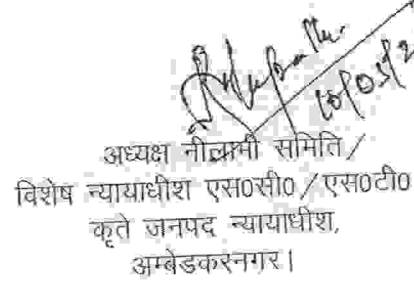 अध्यक्ष नीलामी समिति /
विशेष न्यायाधीश एस0सी0 / एस0टी0
कृते जनपद न्यायाधीश,
अम्बेडकरनगर।